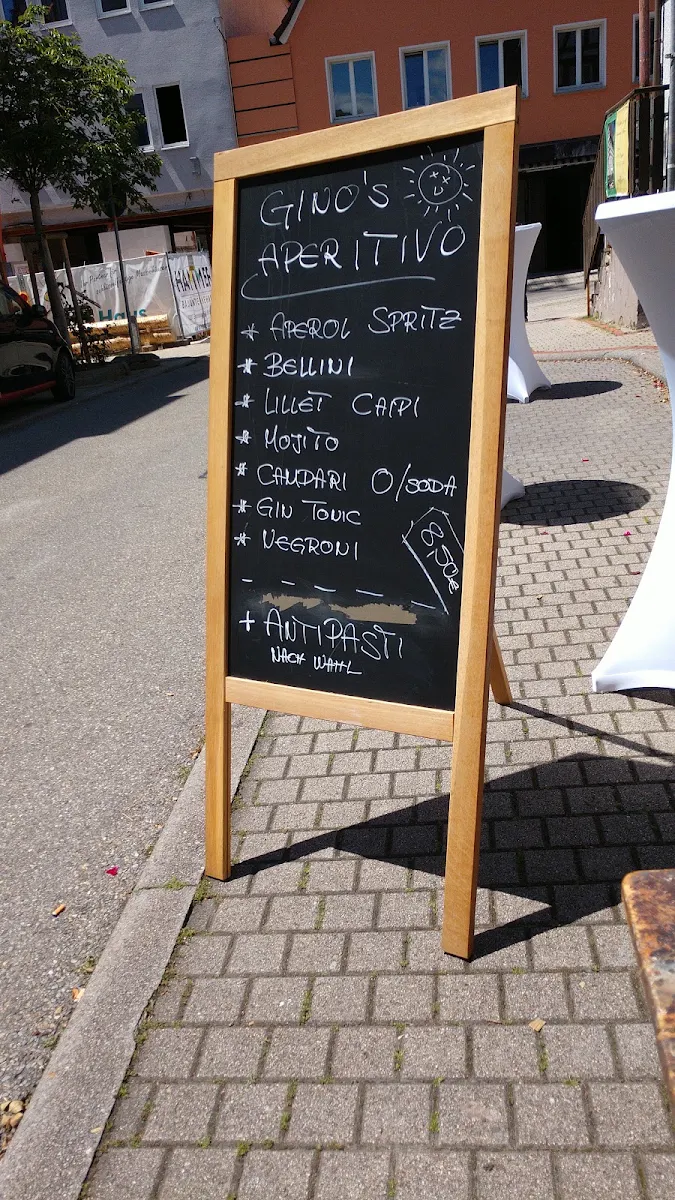 GINO'S
APERITIVO
* APEROL SPRITZ
* BELLINI
* LILLET CAIPI
* MOJITO
* CAMDARI O/SODA
* GIN TONIC
* NEGRONI
8,50€
+ ANTIPASTI
NACH WAHL
Haus
HAMMER